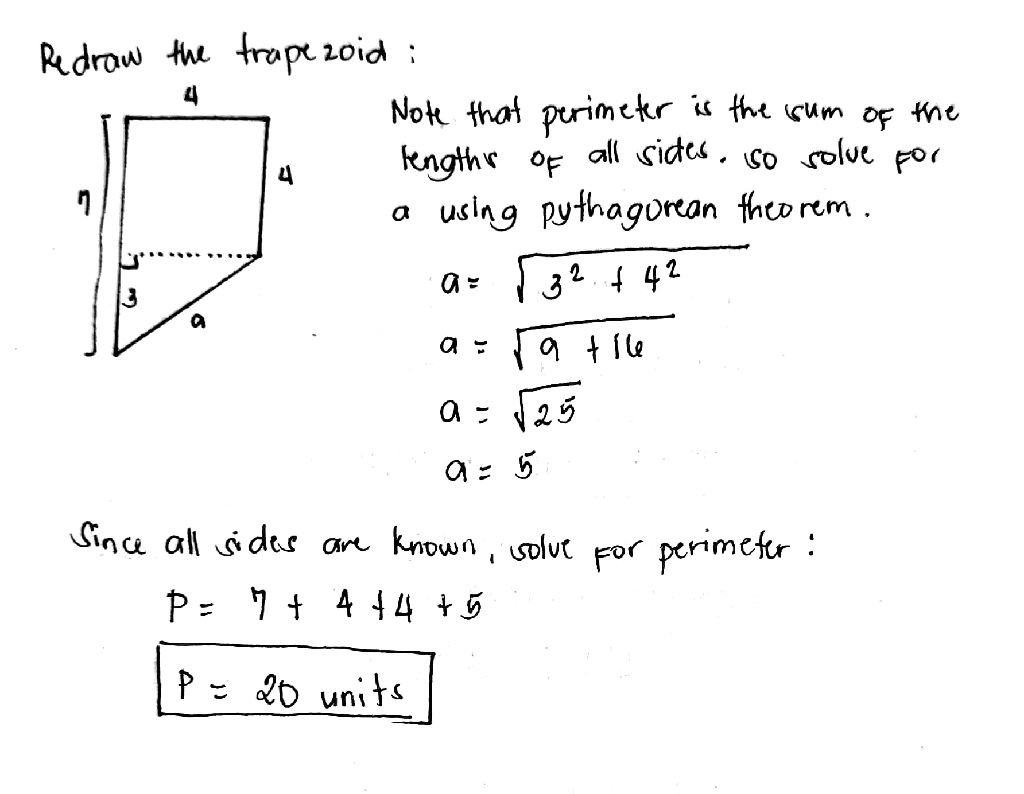 Redraw the trapezoid :
4
Note that perimeter is the sum of the
lengths of all sides. so solve for
a using pythagorean theorem.
7
4
3
a
a = √3² + 4²
a = √9 + 16
a = √25
a = 5
Since all sides are known, solve for perimeter :
P = 7 + 4 + 4 + 5
P = 20 units